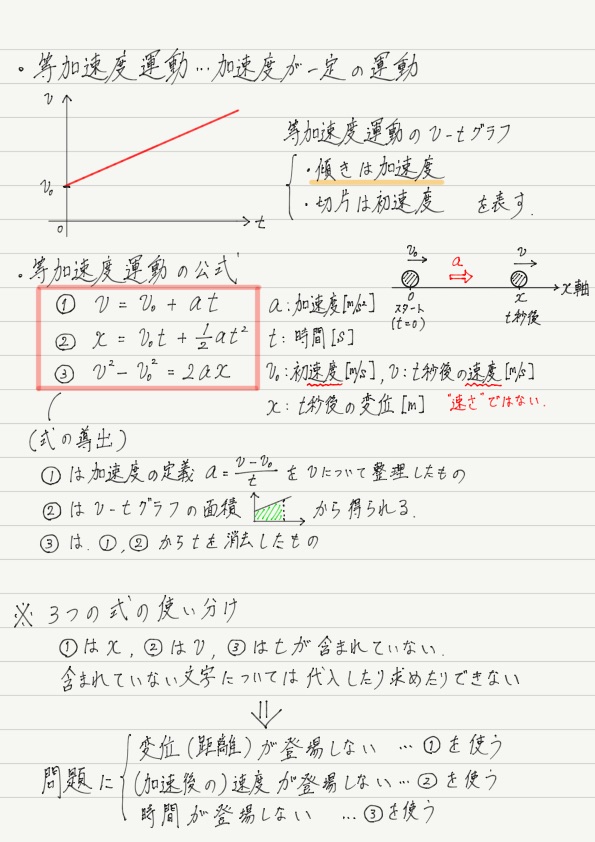 ・等加速度運動…加速度が一定の運動
v
v₀
0
t
等加速度運動のv-tグラフ
・傾きは加速度
・切片は初速度 を表す.
・等加速度運動の公式
① v = v₀ + at
② x = v₀t + 1/2 at²
③ v² - v₀² = 2ax
a:加速度[m/s²]
t:時間[s]
v₀:初速度[m/s], v:t秒後の速度[m/s]
x:t秒後の変位[m] "速さ"ではない.
v₀ a v
0 x x軸
スタート t秒後
(t=0)
(式の導出)
①は加速度の定義 a = (v-v₀)/t をvについて整理したもの
②はv-tグラフの面積 から得られる.
③は.①,②からtを消去したもの
※ 3つの式の使い分け
①はx, ②はv, ③はtが含まれていない.
含まれていない文字については代入したり求めたりできない
⇓
問題に
変位(距離)が登場しない … ①を使う
(加速後の)速度が登場しない… ②を使う
時間が登場しない … ③を使う